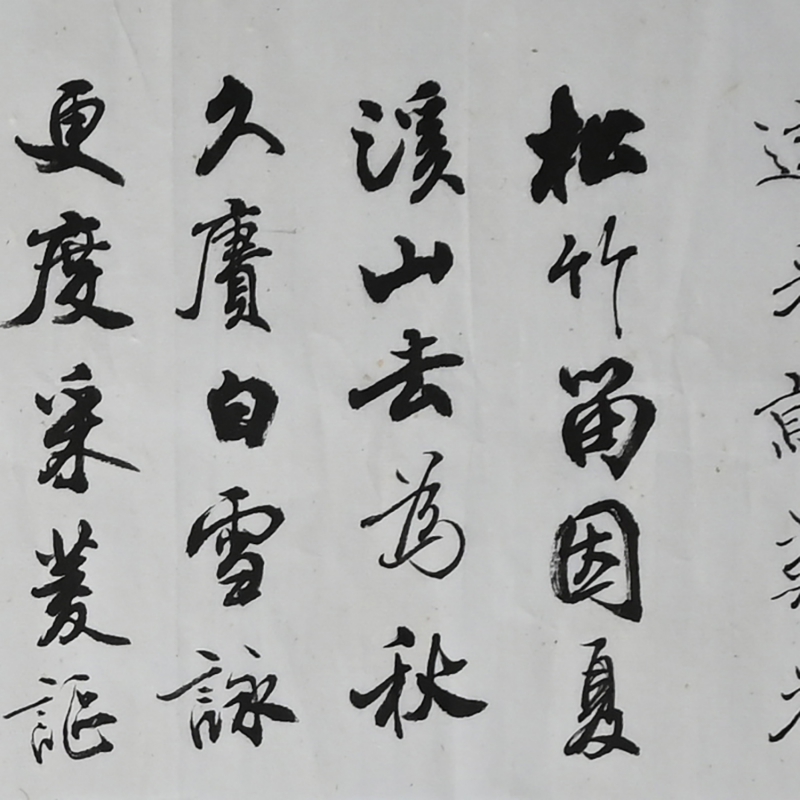 松竹留因夏
溪山去為秋
久賡白雪詠
更度采菱謳